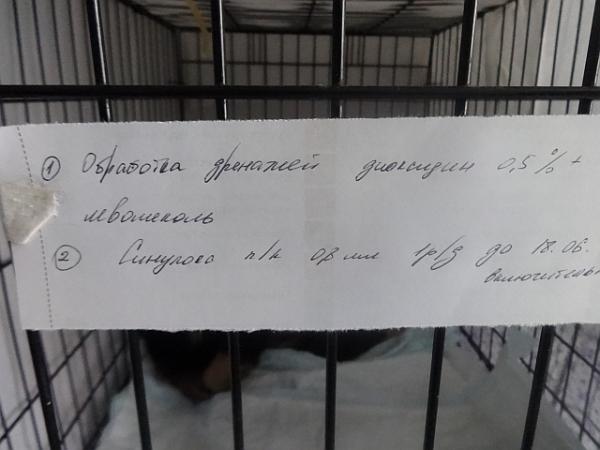 ① Обработка дренажей диоксидин 0,5% +
левомеколь
② Синулокс п/к 0,8 мл 1р/д до 18.06.
включительн